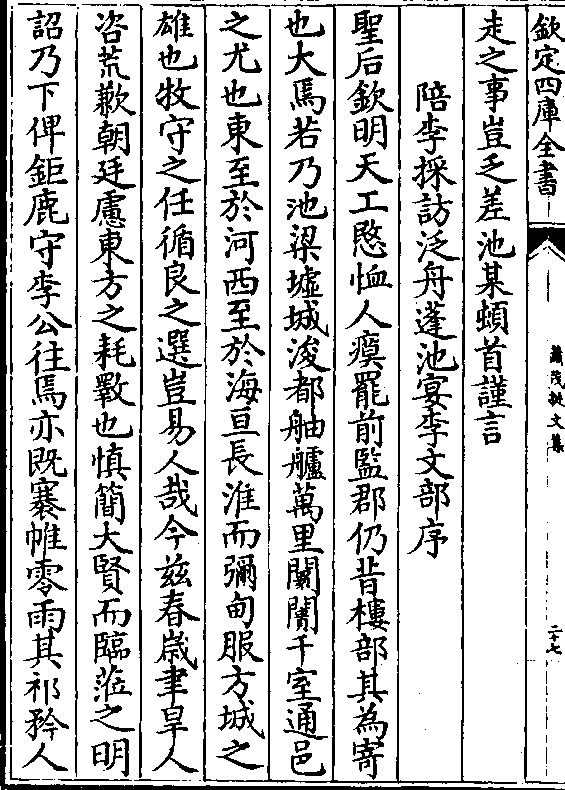 欽定四庫全書
蕭茂挺文集
二十七
走之事豈乏差池某頓首謹言
陪李採訪泛舟蓬池宴李文部序
聖后欽明天工愍恤人瘼罷前監郡仍昔櫻部其為寄
也大焉若乃池梁墟城浚都舳艫萬里闤闠千室通邑
之尤也東至於河西至於海亘長淮而彌甸服方城之
雄也牧守之任循良之選豈易人哉今茲春歲聿皐人
咨荒歉朝廷慮東方之耗斁也慎簡大賢而臨蒞之明
詔乃下俾鉅鹿守李公往焉亦既褰帷零雨其祁矜人